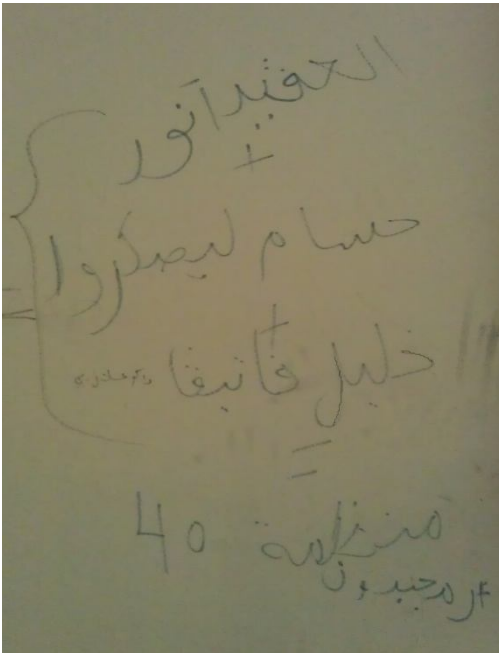 العقيد آنور
+
حسام ليصكروا
+
خليل فاتيقا
=
منظمة 40